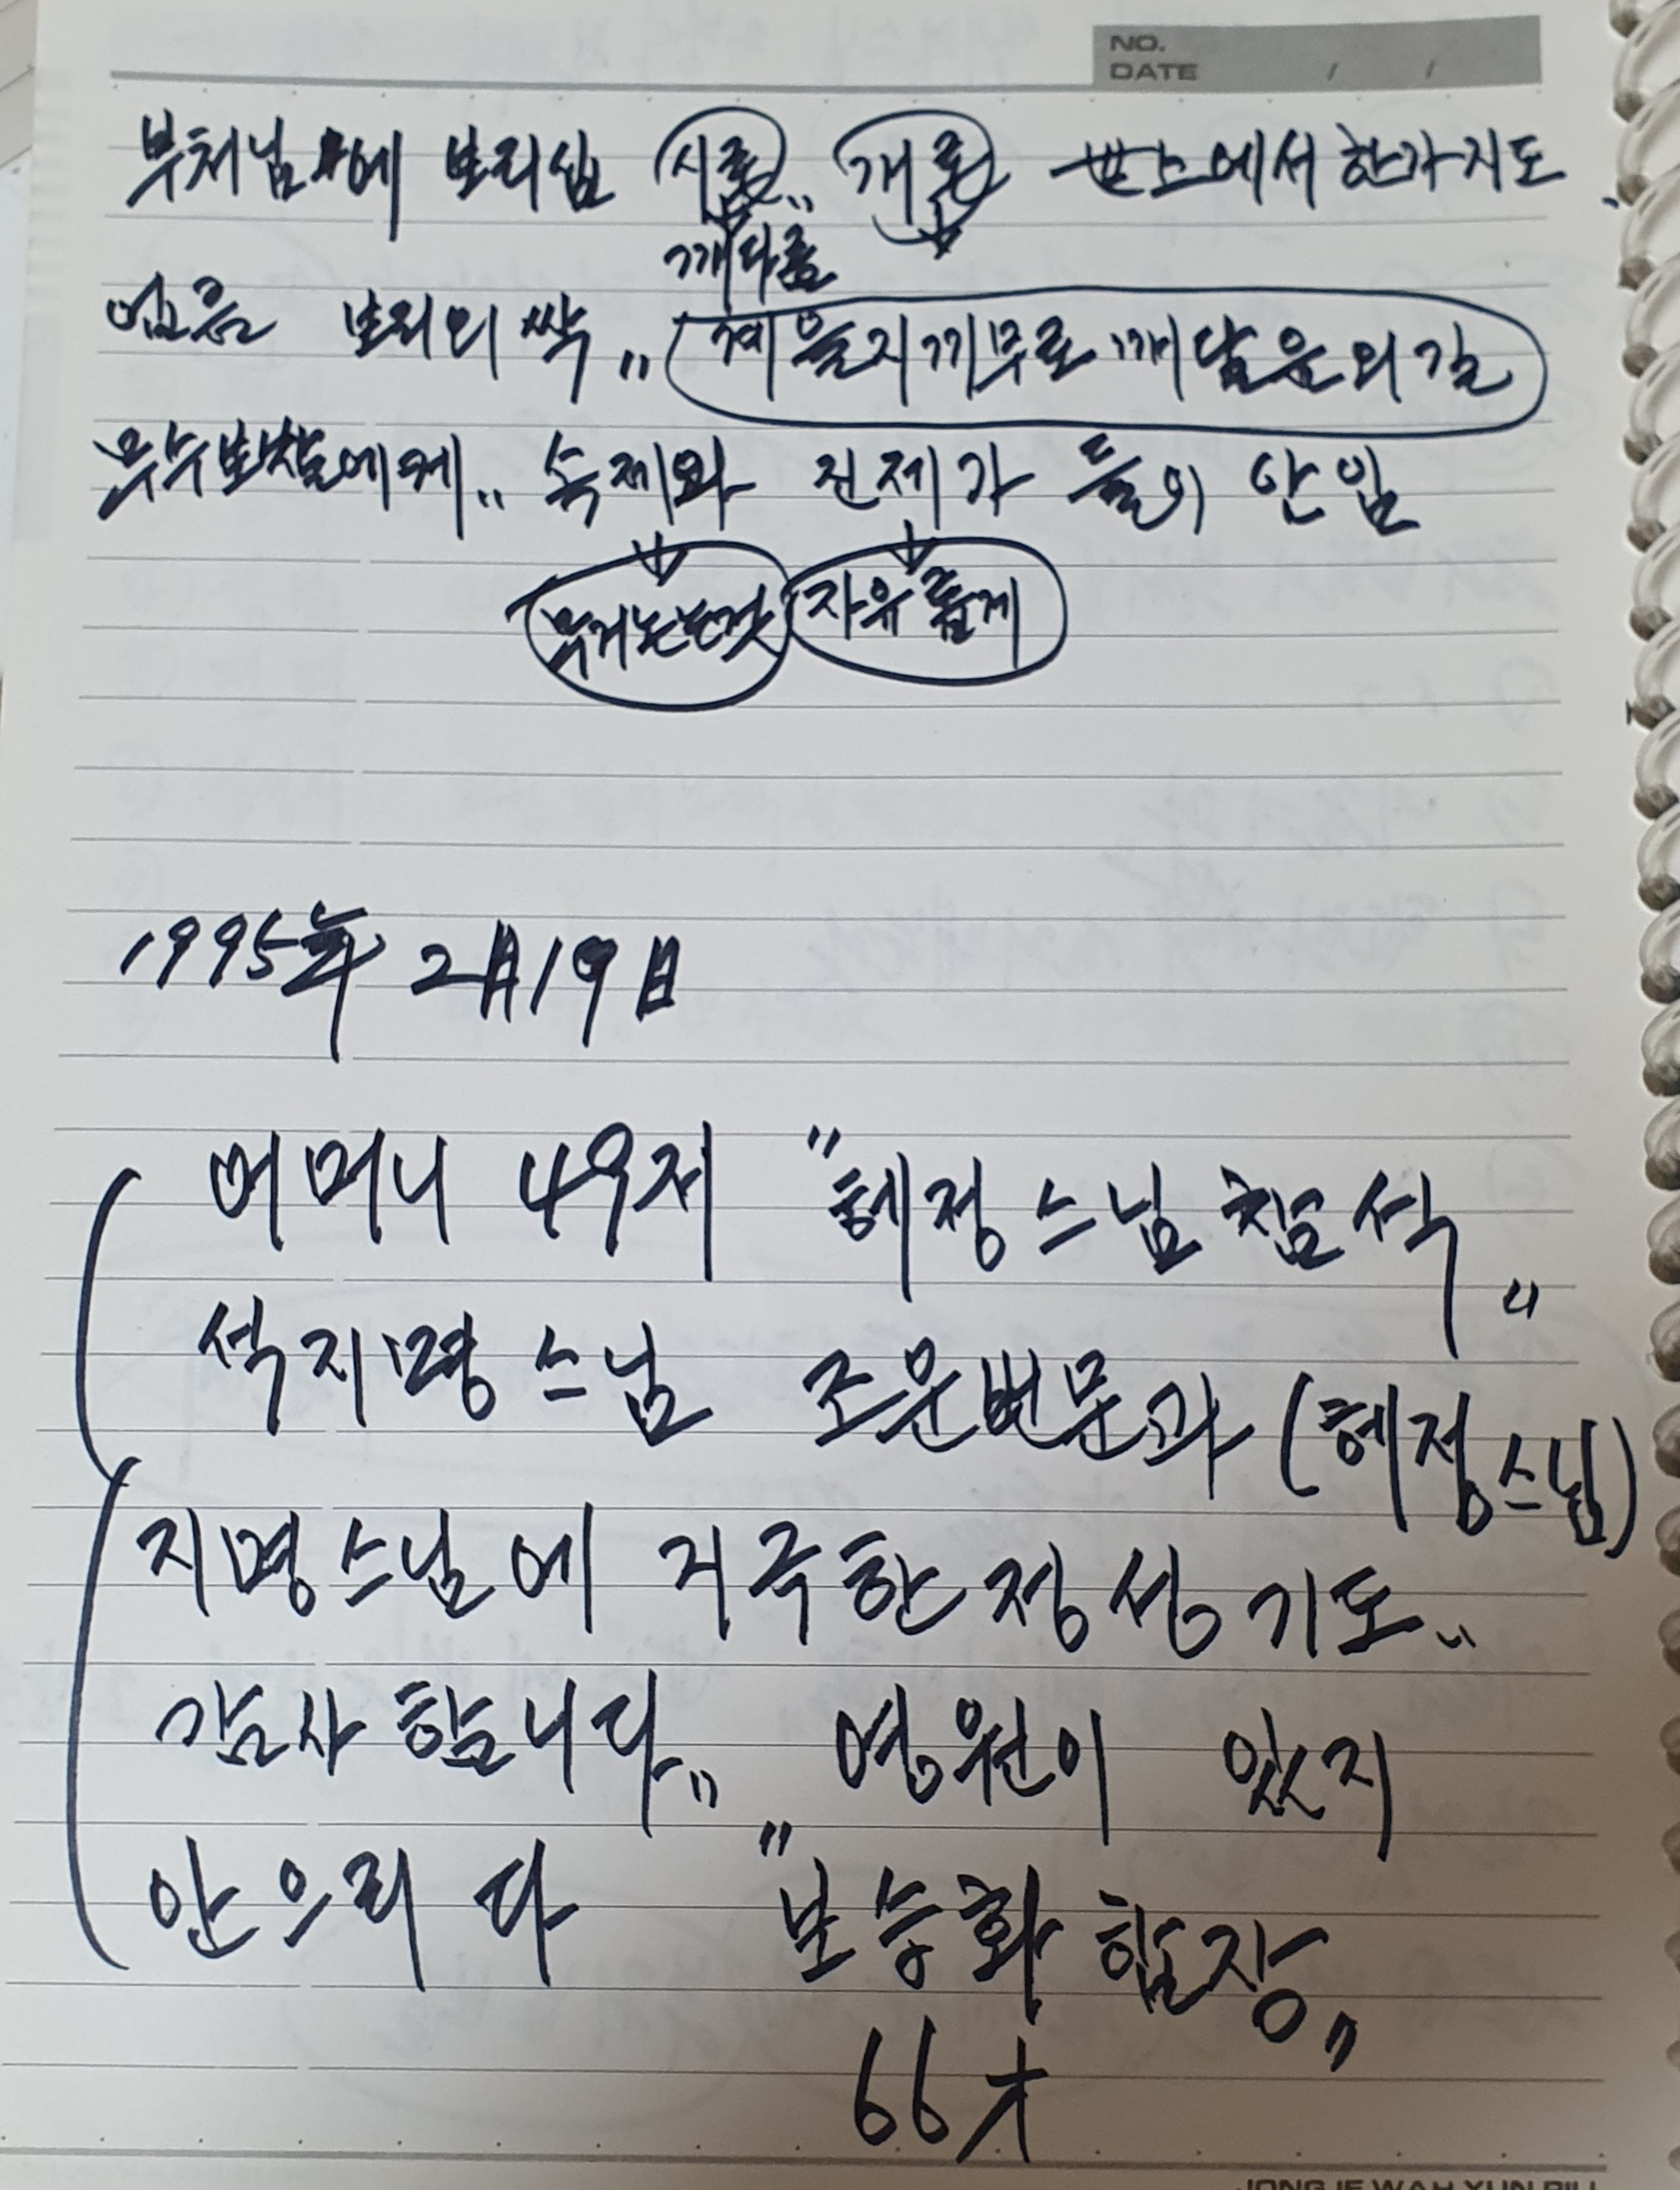 NO.
DATE / /
부처님에 보리심 시론,, 개론 世上에서 한가지도
깨다름
업슴 보리의 싹,, 계을지끼무로 깨달음의 길
무수보살에게,, 속제와 진제가 들의 안임
묵거논는것 자유롭게
1995年 2月19日
어머니 49재 "혜정스님 참석"
석지명 스님 조문법문과 (혜정스님)
지명스님에 지극한 정성 기도,,
감사 합니다,, 영원이 잊지
안으리다 "보승화 합장"
66才